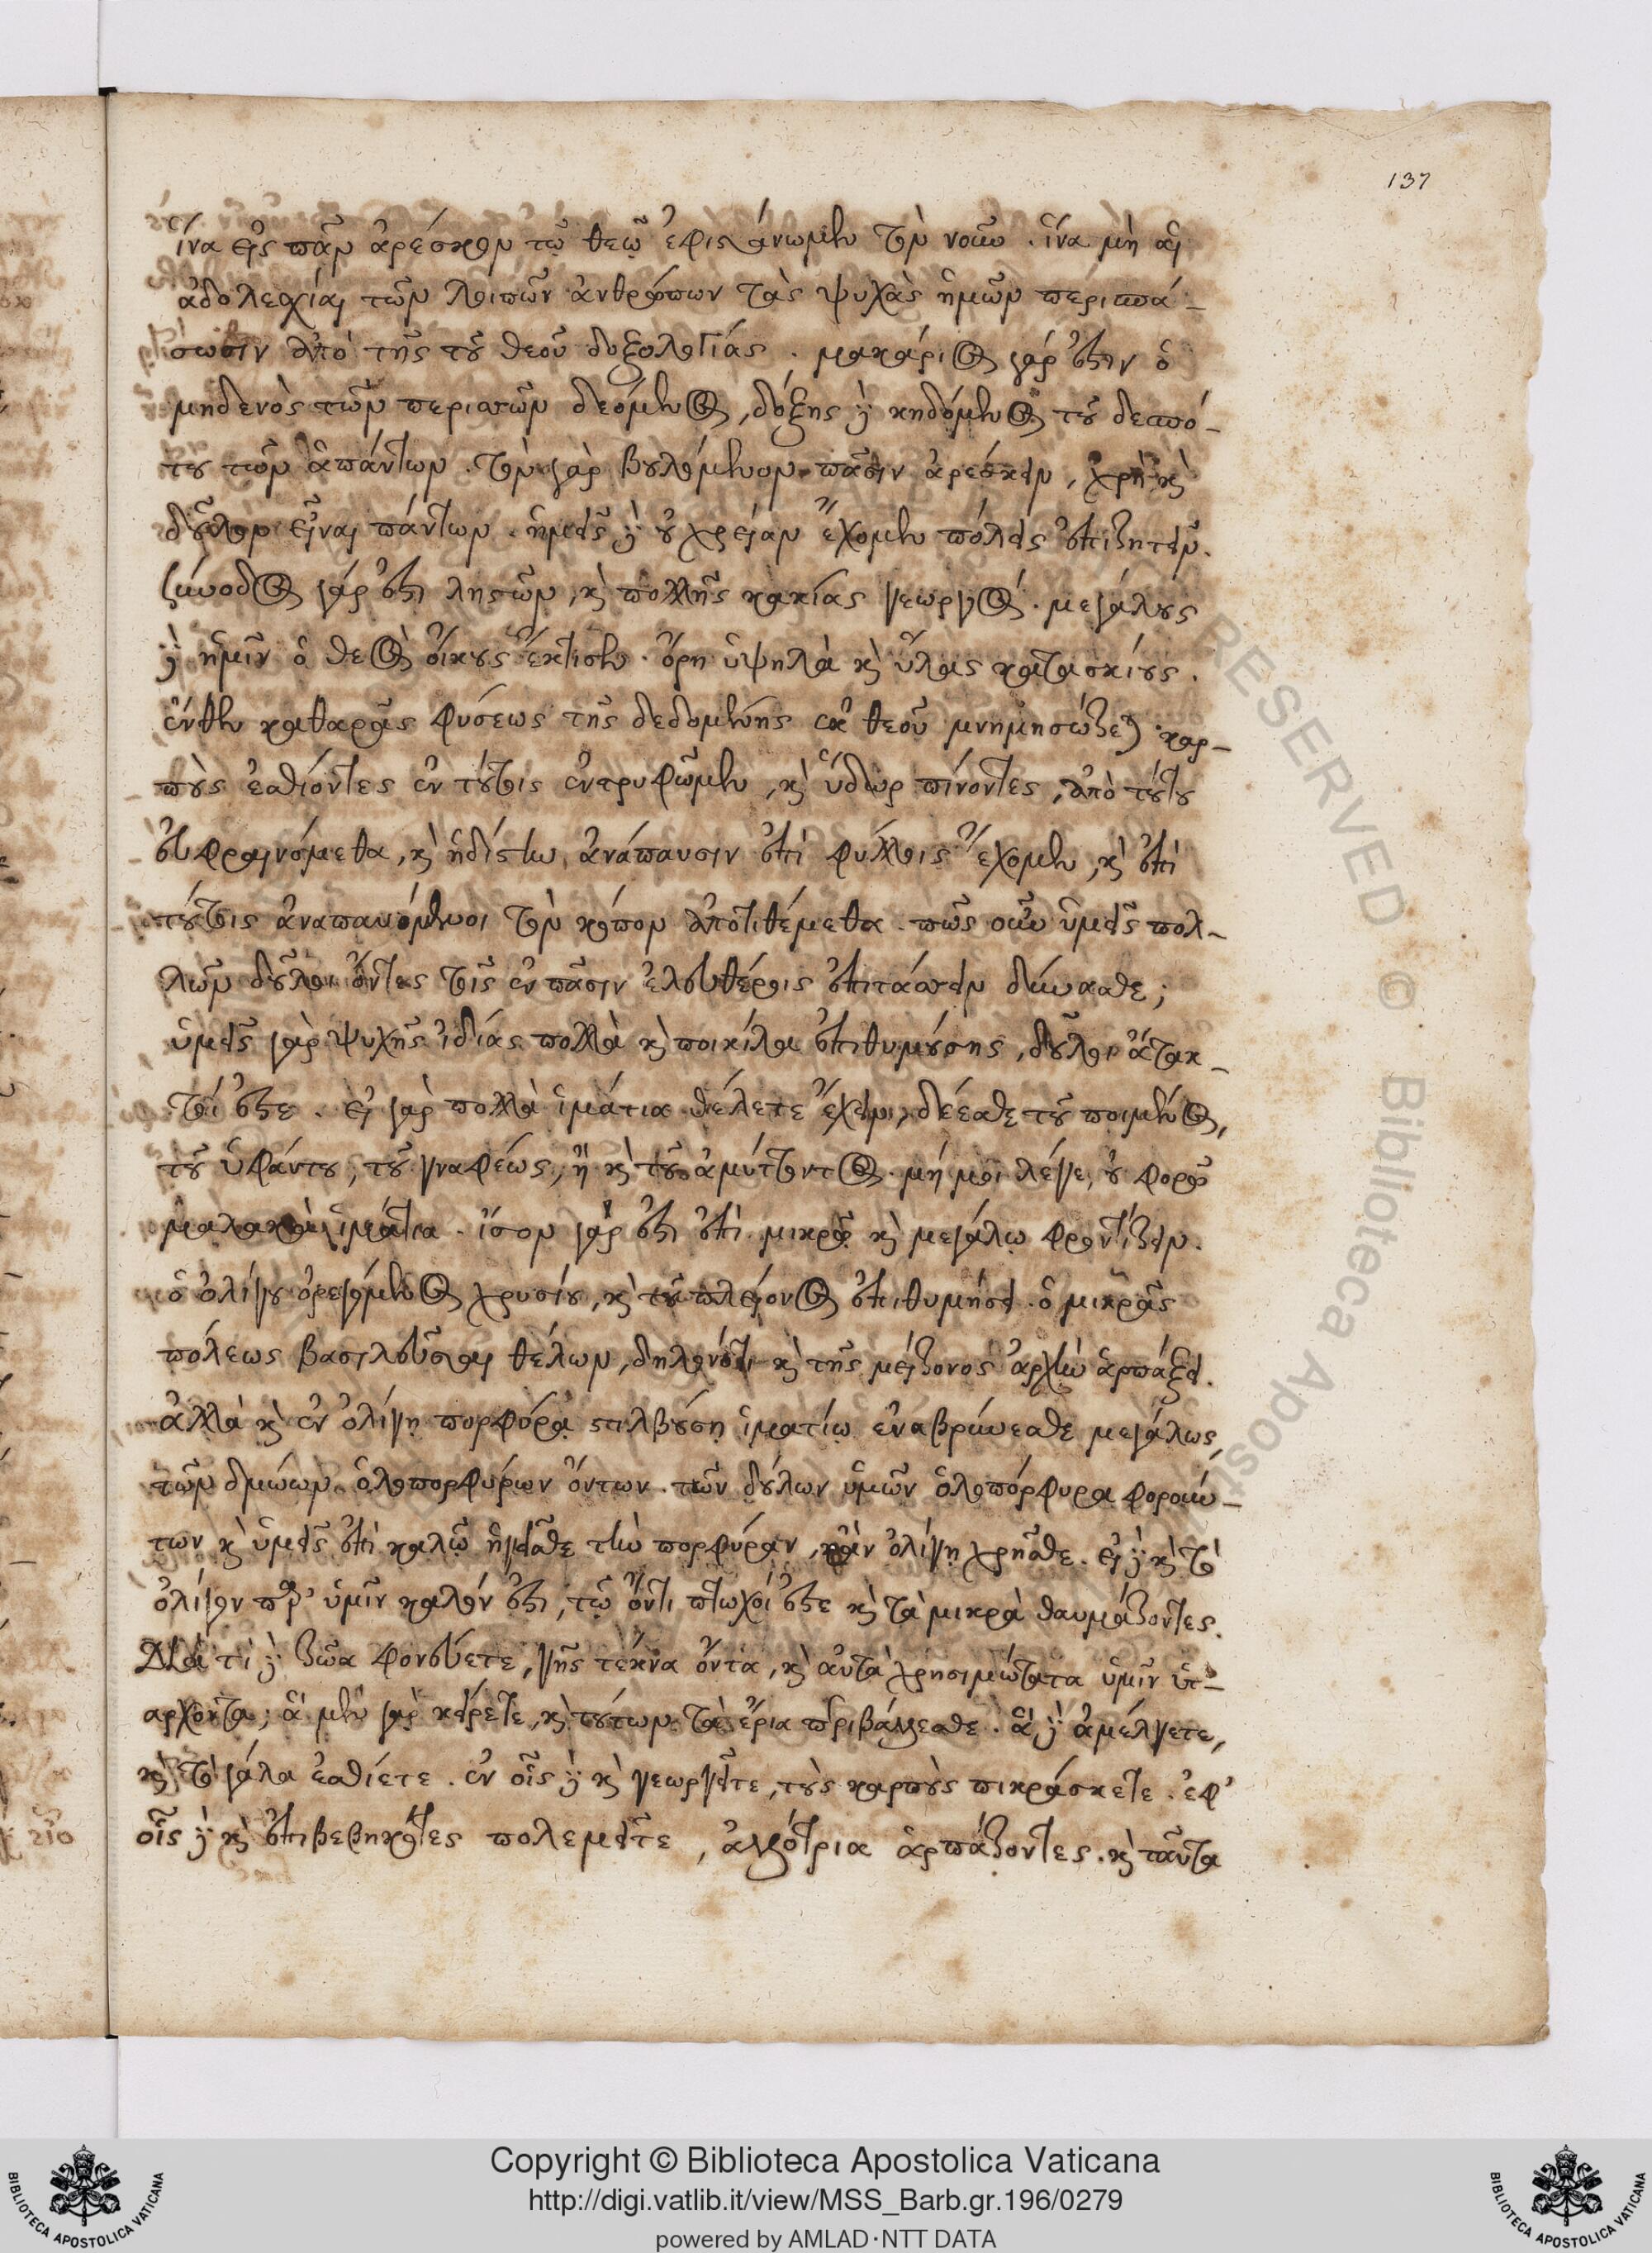 137
ἵνα εἰς πᾶν ἀρέσκον τῷ θεῷ ἐφιστάνωμεν τὸν νοῦν. ἵνα μὴ αἱ
ἀδολεσχίαι τῶν λοιπῶν ἀνθρώπων τὰς ψυχὰς ἡμῶν περισπά-
σωσιν ἀπὸ τῆς τοῦ θεοῦ δοξολογίας. μακάριος γάρ ἐστιν ὁ
μηδενὸς τῶν περισσῶν δεόμενος, δόξης δὲ κηδόμενος τοῦ δεσπό-
του τῶν ἁπάντων. τὸν γὰρ βουλόμενον πᾶσιν ἀρέσκειν, χρὴ καὶ
δοῦλον εἶναι πάντων. ἡμεῖς δὲ οὐ χρείαν ἔχομεν πόλεις ἐπιζητεῖν.
σύνοδος γάρ ἐστι λῃστῶν, καὶ πολλῆς κακίας γεωργός. μεγάλους
δὲ ἡμῖν ὁ θεὸς οἴκους ἔκτισεν. ὄρη ὑψηλὰ καὶ ὕλας κατασκίους.
ἔνθεν καθαρᾶς φύσεως τῆς δεδομένης ἐκ θεοῦ μνήμη σώζεται. καρ-
ποὺς ἐσθίοντες ἐν τούτοις ἐντρυφῶμεν, καὶ ὕδωρ πίνοντες, ἀπὸ τούτου
εὐφραινόμεθα, καὶ ἡδίστην ἀνάπαυσιν ἐπὶ φύλλοις ἔχομεν, καὶ ἐπὶ
τούτοις ἀναπαυόμενοι τὸν κόπον ἀποτιθέμεθα. πῶς οὖν ὑμεῖς πολ-
λῶν δοῦλοι ὄντες τοῖς ἐν πᾶσιν ἐλευθέροις ἐπιτάσσειν δύνασθε;
ὑμεῖς γὰρ ψυχῆς ἰδίας πολλὰ καὶ ποικίλα ἐπιθυμούσης, δοῦλοι ἄτακ-
τοί ἐστε. εἰ γὰρ πολλὰ ἱμάτια θέλετε ἔχειν, δέεσθε τοῦ ποιμένος,
τοῦ ὑφάντου, τοῦ γναφέως, ἢ καὶ τοῦ ἀμύττοντος. μή μοι λέγε, οὐ φορῶ
μαλακὰ ἱμάτια. ἴσον γάρ ἐστι ἐπὶ μικρῷ καὶ μεγάλῳ φροντίζειν.
ὁ ὀλίγου ὀρεγόμενος χρυσίου, καὶ τοῦ πλείονος ἐπιθυμήσει. ὁ μικρᾶς
πόλεως βασιλεῦσαι θέλων, δηλονότι καὶ τῆς μείζονος ἀρχὴν ἁρπάξει.
ἀλλὰ καὶ ἐν ὀλίγῃ πορφύρᾳ στιλβούσῃ ἱματίῳ ἐναβρύνεσθε μεγάλως,
τῶν δμώων ὁλοπορφύρων ὄντων. τῶν δούλων ὑμῶν ὁλοπόρφυρα φορούν-
των καὶ ὑμεῖς ἐπὶ καλῷ ἡγεῖσθε τὴν πορφύραν, κἂν ὀλίγῃ χρῆσθε. εἰ δὲ καὶ τὸ
ὀλίγον παρ’ ὑμῖν καλόν ἐστι, τῷ ὄντι πτωχοί ἐστε καὶ τὰ μικρὰ θαυμάζοντες.
Διὰ τί δὲ ζῶα φονεύετε, γῆς τέκνα ὄντα, καὶ αὐτὰ χρησιμώτατα ὑμῖν ὑπ-
άρχοντα; ἃ μὲν γὰρ κείρετε, καὶ τούτων τὰ ἔρια περιβάλλεσθε. ἃ δὲ ἀμέλγετε,
καὶ τὸ γάλα ἐσθίετε. ἐν οἷς δὲ καὶ γεωργεῖτε, τοὺς καρποὺς πικράσκετε. ἐφ’
οἷς δὲ καὶ ἐπιβεβηκότες πολεμεῖτε, ἀλλότρια ἁρπάζοντες. καὶ ταῦτα
RESERVED © Biblioteca Apost
Copyright © Biblioteca Apostolica Vaticana
http://digi.vatlib.it/view/MSS_Barb.gr.196/0279
powered by AMLAD·NTT DATA
BIBLIOTECA APOSTOLICA VATICANA
BIBLIOTECA APOSTOLICA VATICANA